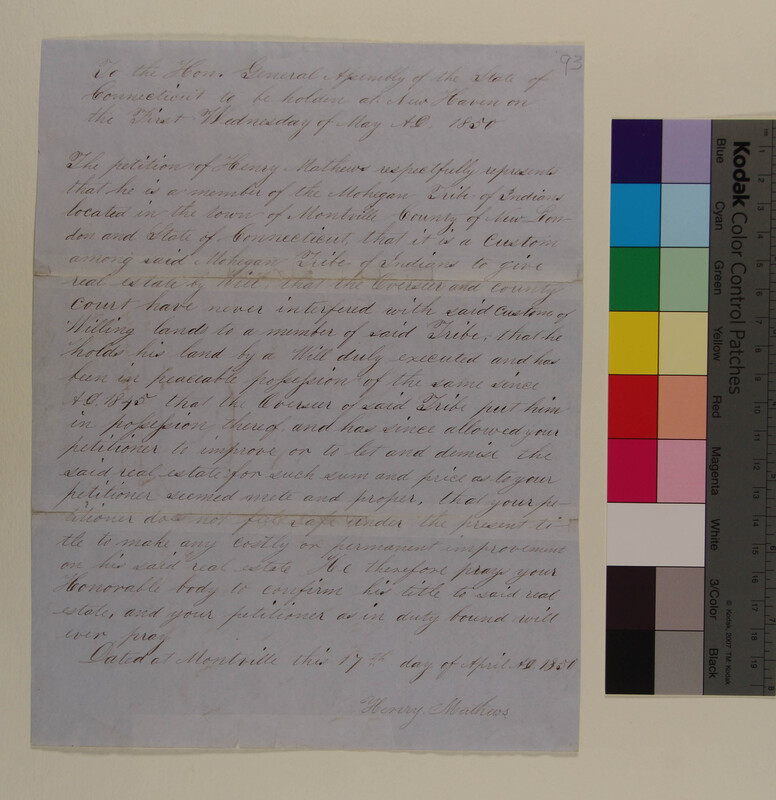 93
To the Hon. General Assembly of the State of
Connecticut to be holden at New Haven on
the First Wednesday of May A.D. 1850
The petition of Henry Mathews respectfully represents
that he is a member of the Mohegan Tribe of Indians
located in the town of Montville County of New-Lon-
don and State of Connecticut, that it is a custom
among said Mohegan Tribe of Indians to give
real estate by Will that the Overseer and County
Court have never interfered with said custom of
Willing lands to a member of said Tribe, that he
holds his land by a Will duly executed and has
been in peaceable possession of the same since
A.D. 1845 that the Overseer of said Tribe put him
in possession thereof and has since allowed your
petitioner to improve or to let and demise the
said real estate for such sum and price as to your
petitioner seemed mete and proper, that your pe-
titioner does not feel safe under the present ti-
tle to make any costly or permanent improvement
on his said real estate He therefore prays your
Honorable body to confirm his title to said real
estate, and your petitioner as in duty bound will
ever pray
Dated at Montville this 17th day of April A.D. 1850
Henry Mathews
Kodak Color Control Patches
Blue
Cyan
Green
Yellow
Red
Magenta
White
3/Color
Black
© Kodak, 2007 TM: Kodak
1
2
3
4
5
6
7
8
9
10
11
12
13
14
15
16
17
18
19